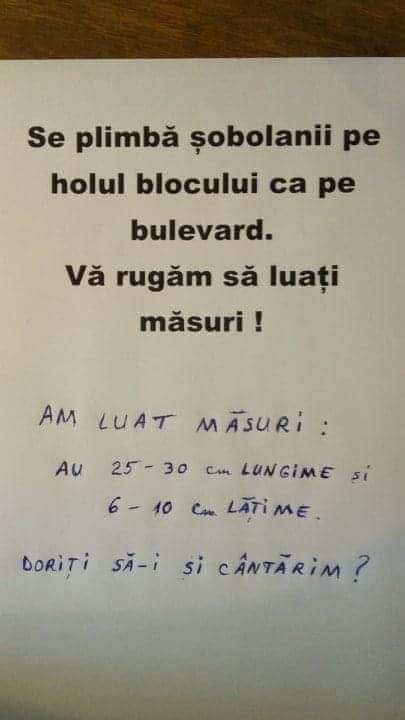 Se plimbă șobolanii pe
holul blocului ca pe
bulevard.
Vă rugăm să luați
măsuri !
AM LUAT MĂSURI :
AU 25-30 cm LUNGIME și
6 - 10 cm LĂȚIME.
DORIȚI SĂ-i și CÂNTĂRIM ?